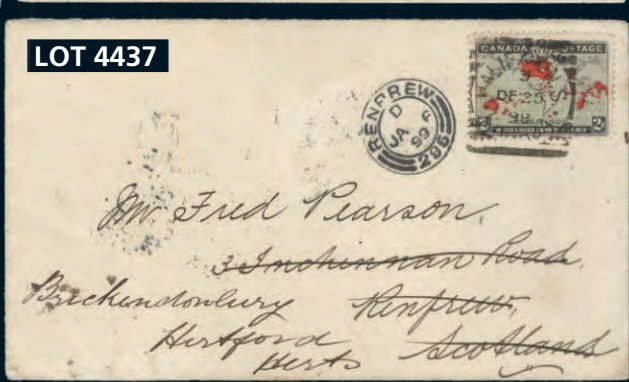 LOT 4437
CANADA POSTAGE
HALIFAX
DE 25
98
2 2
RENFREW
D
JA 6
99
295
Mr. Fred Pearson,
3 Inchinnan Road,
Brickendonbury Renfrew,
Hertford Scotland
Herts